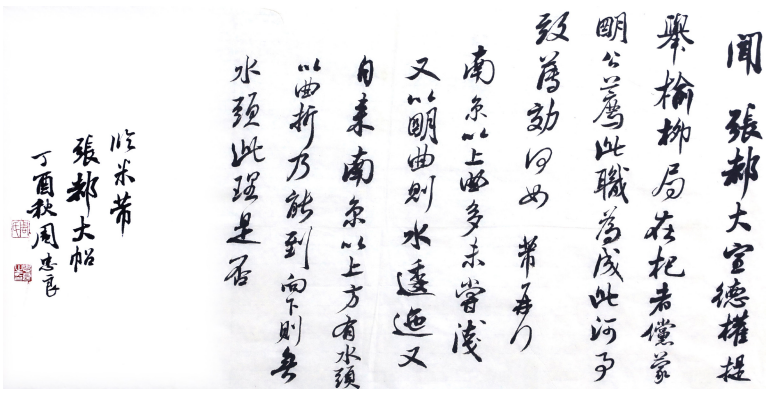 聞張都大宣德權提
舉榆柳局在杞者儻蒙
明公薦此職為成此河事
致薦効何如 芾再行
南京以上曲多未嘗淺
又以明曲則水逶迤又
自来南京以上方有水頭
以曲折乃能到向下則無
水頭此理是否
臨米芾
張都大帖
丁酉秋周忠良